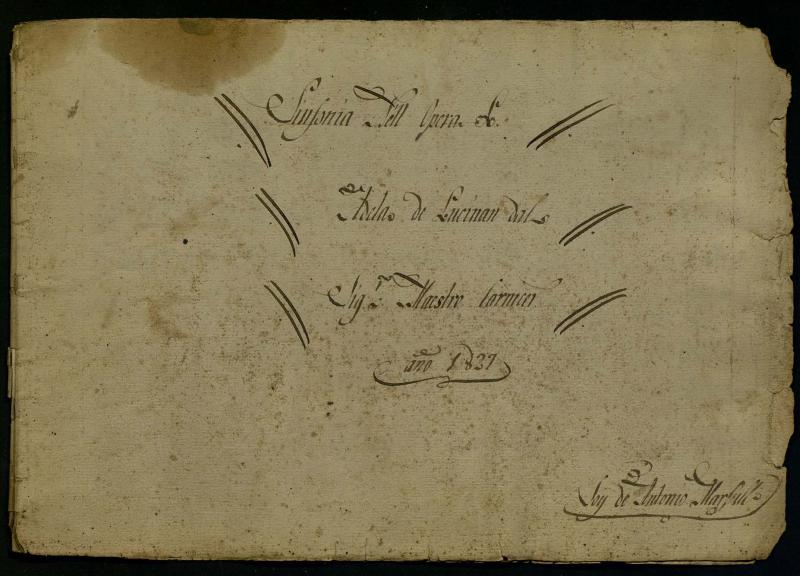 Sinfonia Dell Opera L.
Adela de Lucinan dal
Sig.r Maestro Carnicer
año 1837
Soy de Antonio